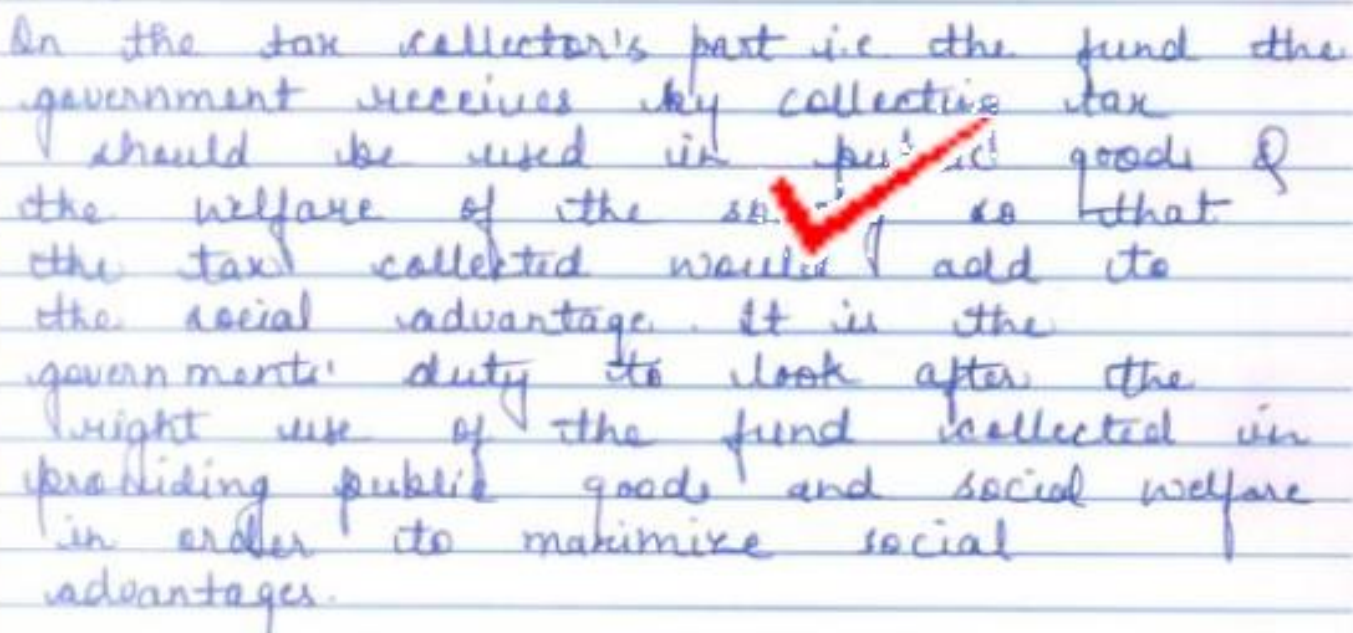 On the tax collector's part i.e the fund the
government receives by collecting tax
should be used in public goods &
the welfare of the so that
the tax collected would add to
the social advantage. It is the
governments' duty to look after the
right use of the fund collected in
providing public goods and social welfare
in order to maximize social
advantages.